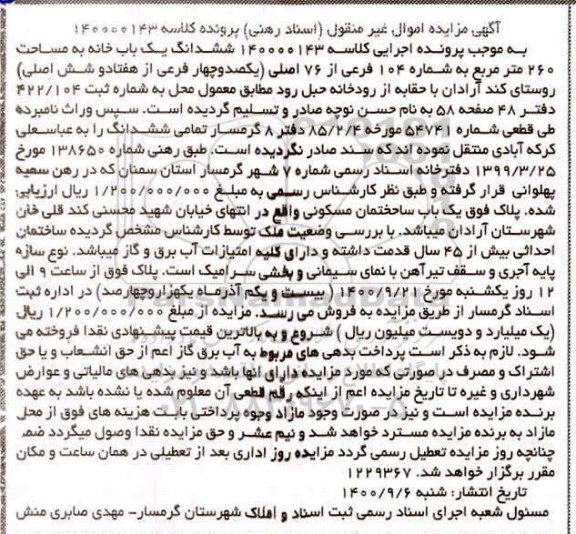 آگهی مزایده اموال غیر منقول (اسناد رهنی) پرونده کلاسه ۱۴۰۰۰۰۱۴۳
به موجب پرونده اجرایی کلاسه ۱۴۰۰۰۰۱۴۳ ششدانگ یک باب خانه به مساحت
۲۶۰ متر مربع به شماره ۱۰۴ فرعی از ۷۶ اصلی (یکصدوچهار فرعی از هفتادو شش اصلی)
روستای کند آرادان با حقابه از رودخانه حبل رود مطابق معمول محل به شماره ثبت ۴۲۲/۱۰۴
دفتر ۴۸ صفحه ۵۸ به نام حسن نوچه صادر و تسلیم گردیده است. سپس وراث نامبرده
طی قطعی شماره ۵۴۷۴۱ مورخه ۸۵/۲/۴ دفتر ۸ گرمسار تمامی ششدانگ را به عباسعلی
کرکه آبادی منتقل نموده اند که سند صادر نگردیده است. طبق رهنی شماره ۱۳۸۶۵۰ مورخ
۱۳۹۹/۳/۲۵ دفترخانه اسناد رسمی شماره ۷ شهر گرمسار استان سمنان که در رهن سعیه
پهلوانی قرار گرفته و طبق نظر کارشناس رسمی به مبلغ ۱/۲۰۰/۰۰۰/۰۰۰ ریال ارزیابی
شده. پلاک فوق یک باب ساختمان مسکونی واقع در انتهای خیابان شهید محسنی کند قلی خان
شهرستان آرادان میباشد. با بررسی وضعیت ملک توسط کارشناس مشخص گردیده ساختمان
احداثی بیش از ۴۵ سال قدمت داشته و دارای کلیه امتیازات آب برق و گاز میباشد. نوع سازه
پایه آجری و سقف تیرآهن با نمای سیمانی و بخشی سرامیک است. پلاک فوق از ساعت ۹ الی
۱۲ روز یکشنبه مورخ ۱۴۰۰/۹/۲۱ (بیست و یکم آذرماه یکهزاروچهارصد) در اداره ثبت
اسناد گرمسار از طریق مزایده به فروش می رسد. مزایده از مبلغ ۱/۲۰۰/۰۰۰/۰۰۰ ریال
(یک میلیارد و دویست میلیون ریال ) شروع و به بالاترین قیمت پیشنهادی نقدا فروخته می
شود. لازم به ذکر است پرداخت بدهی های مربوط به آب برق گاز اعم از حق انشعاب و یا حق
اشتراک و مصرف در صورتی که مورد مزایده دارای انها باشد و نیز بدهی های مالیاتی و عوارض
شهرداری و غیره تا تاریخ مزایده اعم از اینکه رقم قطعی آن معلوم شده یا نشده باشد به عهده
برنده مزایده است و نیز در صورت وجود مازاد وجوه پرداختی بابت هزینه های فوق از محل
مازاد به برنده مزایده مسترد خواهد شد و نیم عشر و حق مزایده نقدا وصول میگردد ضم
چنانچه روز مزایده تعطیل رسمی گردد مزایده روز اداری بعد از تعطیلی در همان ساعت و مکان
مقرر برگزار خواهد شد. ۱۲۲۹۳۶۷
تاریخ انتشار: شنبه ۱۴۰۰/۹/۶
مسئول شعبه اجرای اسناد رسمی ثبت اسناد و املاک شهرستان گرمسار- مهدی صابری منش